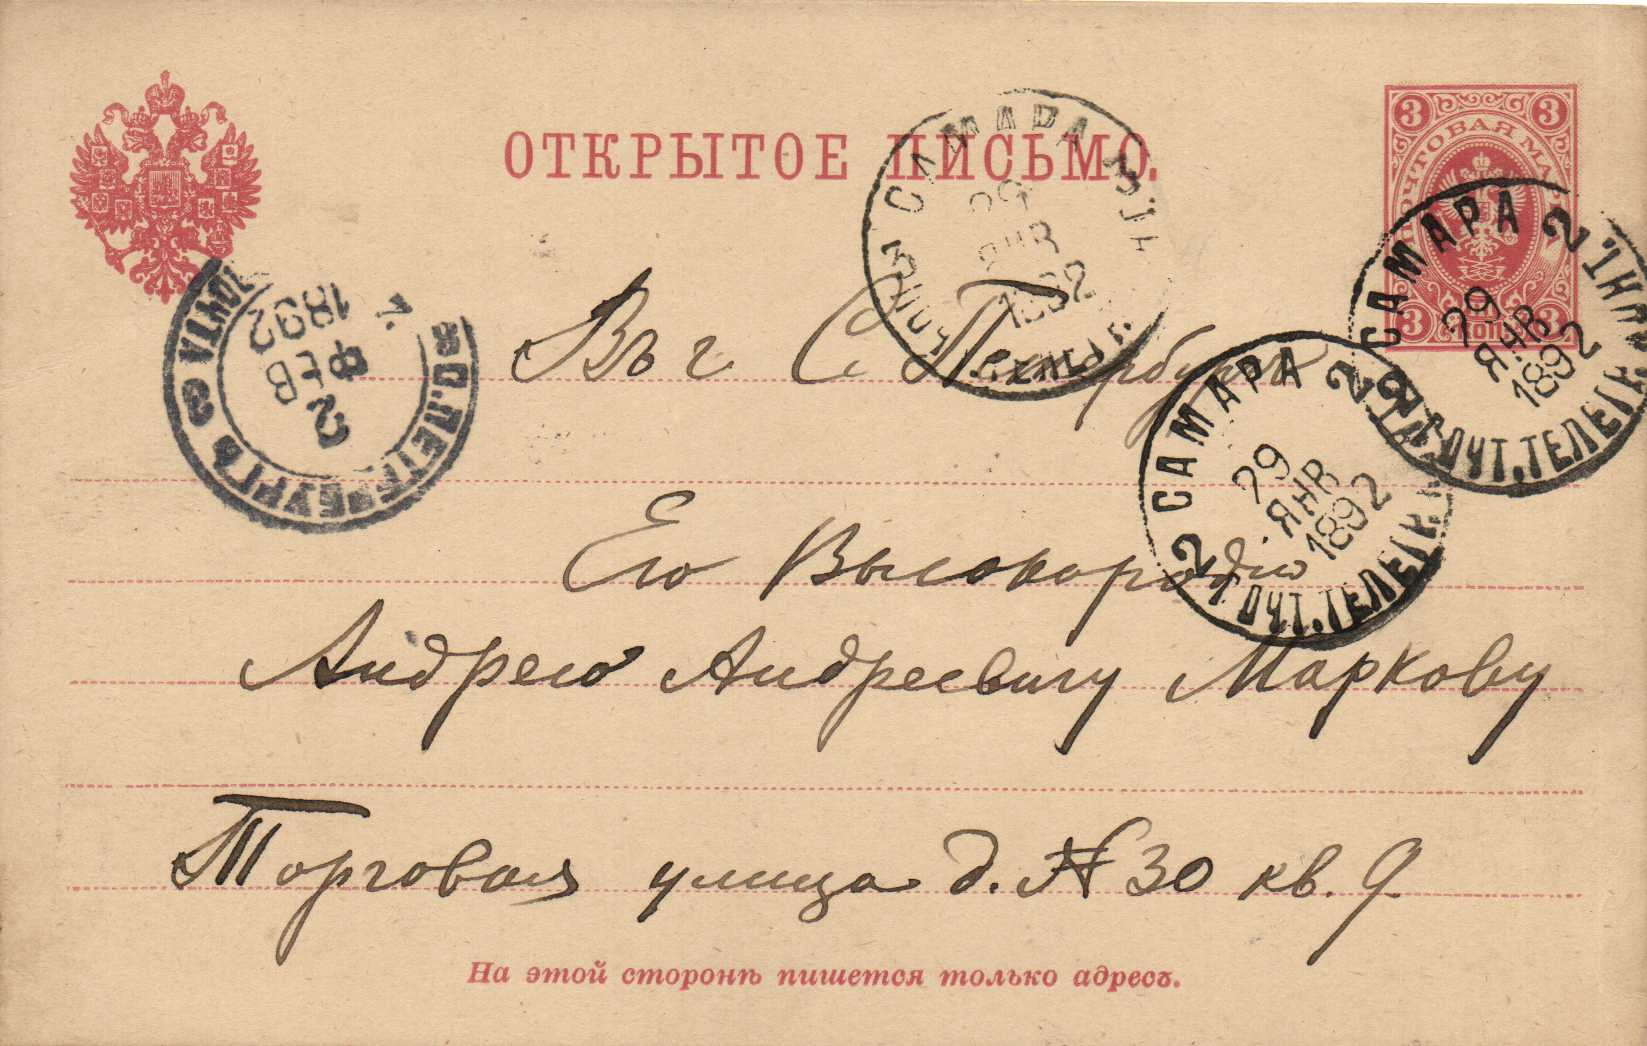 ОТКРЫТОЕ ПИСЬМО.
3 3
ПОЧТОВАЯ МА
3 3
САМАРА
29
ЯНВ
1892
САМАРА 2
29
ЯНВ
1892
ПОЧТ. ТЕЛЕГР.
САМАРА 2
29
ЯНВ
1892
2 ПОЧТ. ТЕЛЕГР.
ПОЧТА
С. ПЕТЕРБУРГЪ
2
ФЕВ
1892
Въ г. С. Петербургъ
Его Высокородію
Андрею Андреевичу Маркову
Торговая улица д. № 30 кв. 9
На этой сторонѣ пишется только адресъ.